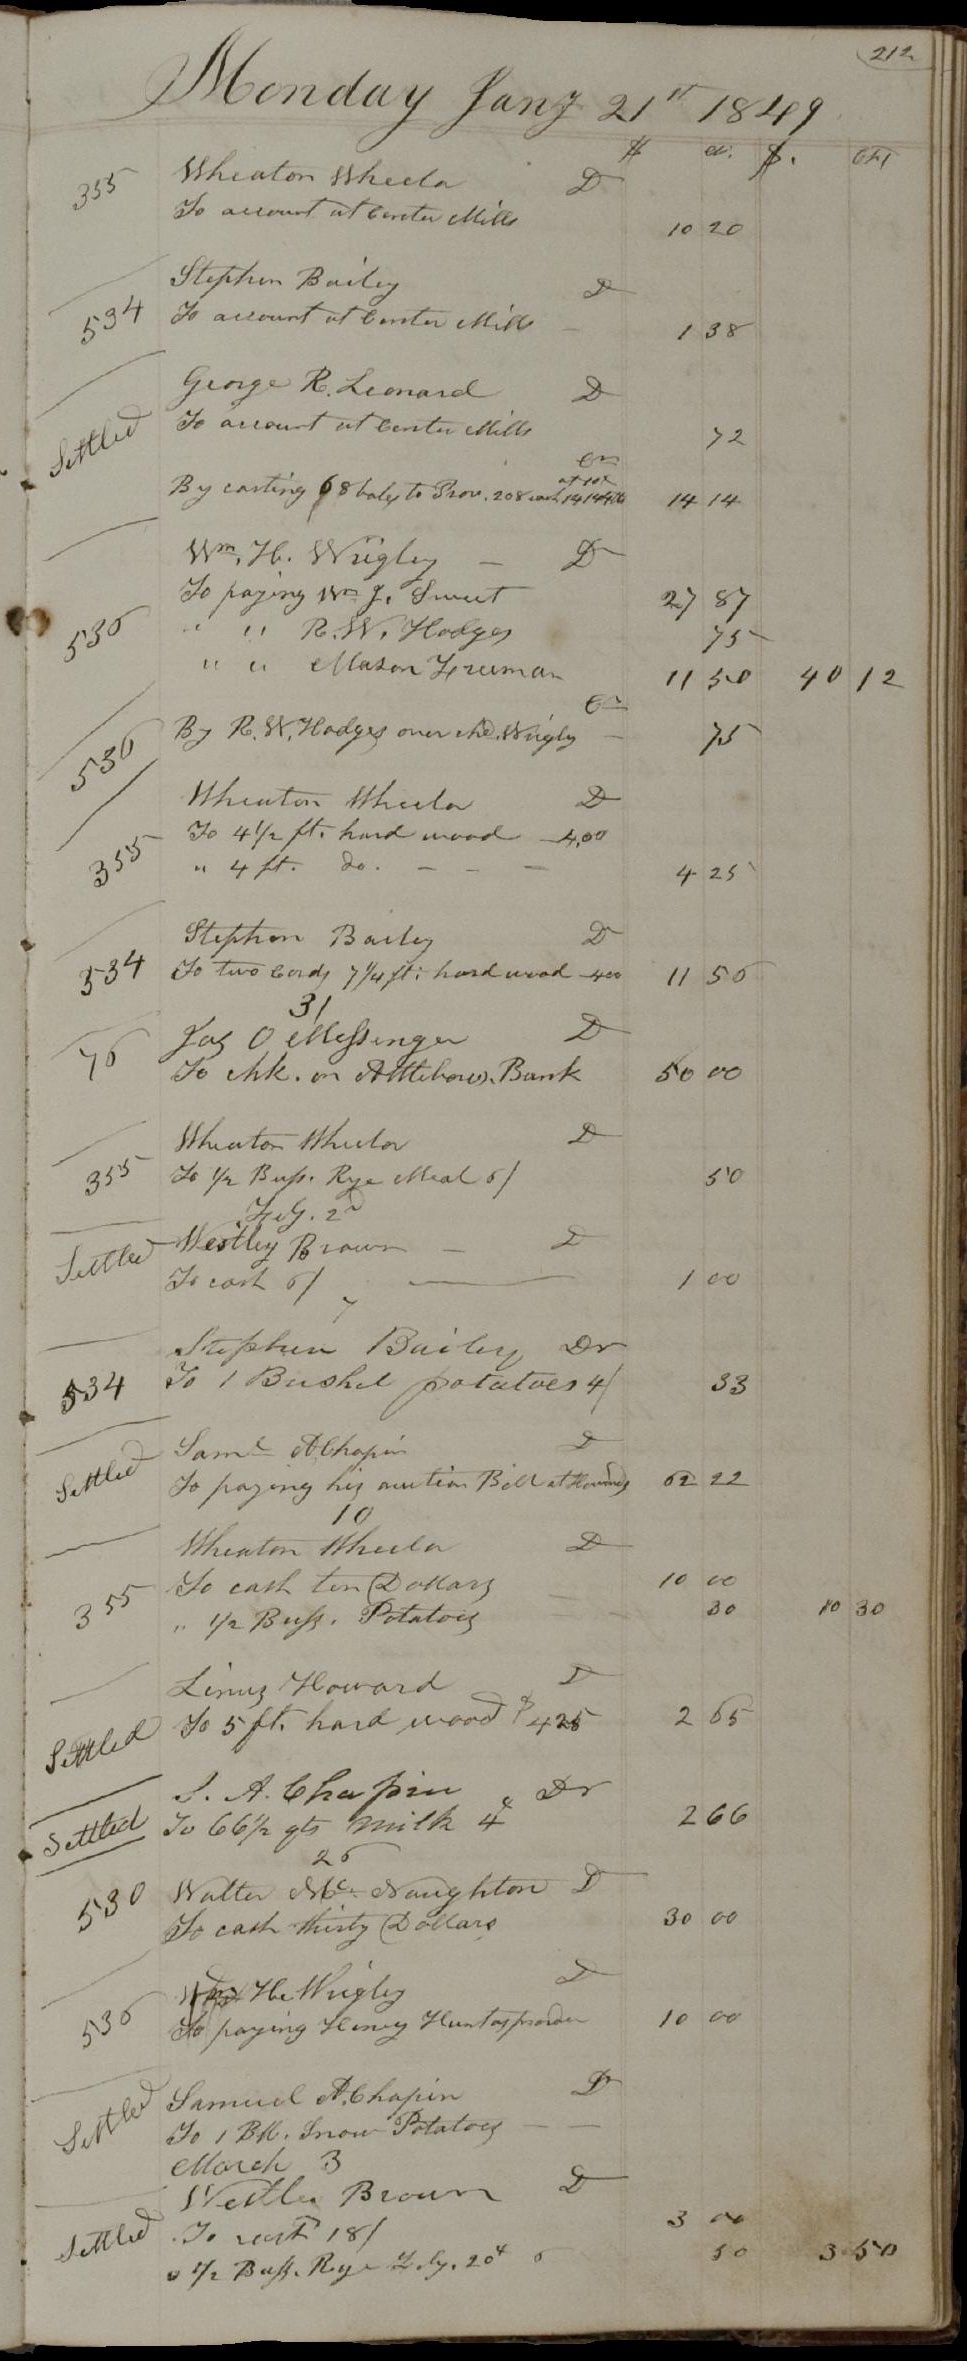 212
Monday Jany 21st 1849
$ ct. $. cts
355 Wheaton Wheelor D
To account at Center Mills 10 20
534 Stephen Bailey D
To account at Center Mills 1 38
Settled George R. Leonard D
To account at Center Mills 72
Cr
By carting 68 bales to Prov. 208 14 14
Wm. H. Wrigley D
536 To paying Wm J. Sweet 27 87
" " R. W. Hodges 75
" " Mason Freeman 11 50 40 12
Cr
536 By R. W. Hodges over chd. Wrigley 75
Wheaton Wheelor D
355 To 4 1/2 ft. hard wood 4,00
" 4 ft. do. 4 25
Stephen Bailey D
534 To two Cords 7 1/4 ft. hard wood 400 11 56
31
76 Jas O Messenger D
To chk. on Attleboro. Bank 50 00
Wheaton Wheelor D
355 To 1/2 Bush. Rye Meal 6/ 50
Feby. 2d
Settled Westley Brown D
To cash 6/ 1 00
7
Stephen Bailey Dr
534 To 1 Bushel potatoes 4/ 33
Settled Saml A Chapin D
To paying his auction Bill at Howards 62 22
10
Wheaton Wheelor D
355 To cash ten Dollars 10 00
" 1/2 Bush. Potatoes 30 10 30
Linus Howard D
Settled To 5 ft. hard wood $ 425 2 65
S. A. Chapin Dr
Settled To 66 1/2 qts milk 4c 2 66
26
530 Walter Mc Naughton D
To cash thirty Dollars 30 00
Wm H. Wrigley D
536 To paying Henry Hunt as pr order 10 00
Settled Samuel A. Chapin Dr
To 1 Bu. Snow Potatoes
March 3
Westley Brown D
Settled To cash 18/ 3 00
" 1/2 Bush. Rye Feby. 20th 6 50 3 50